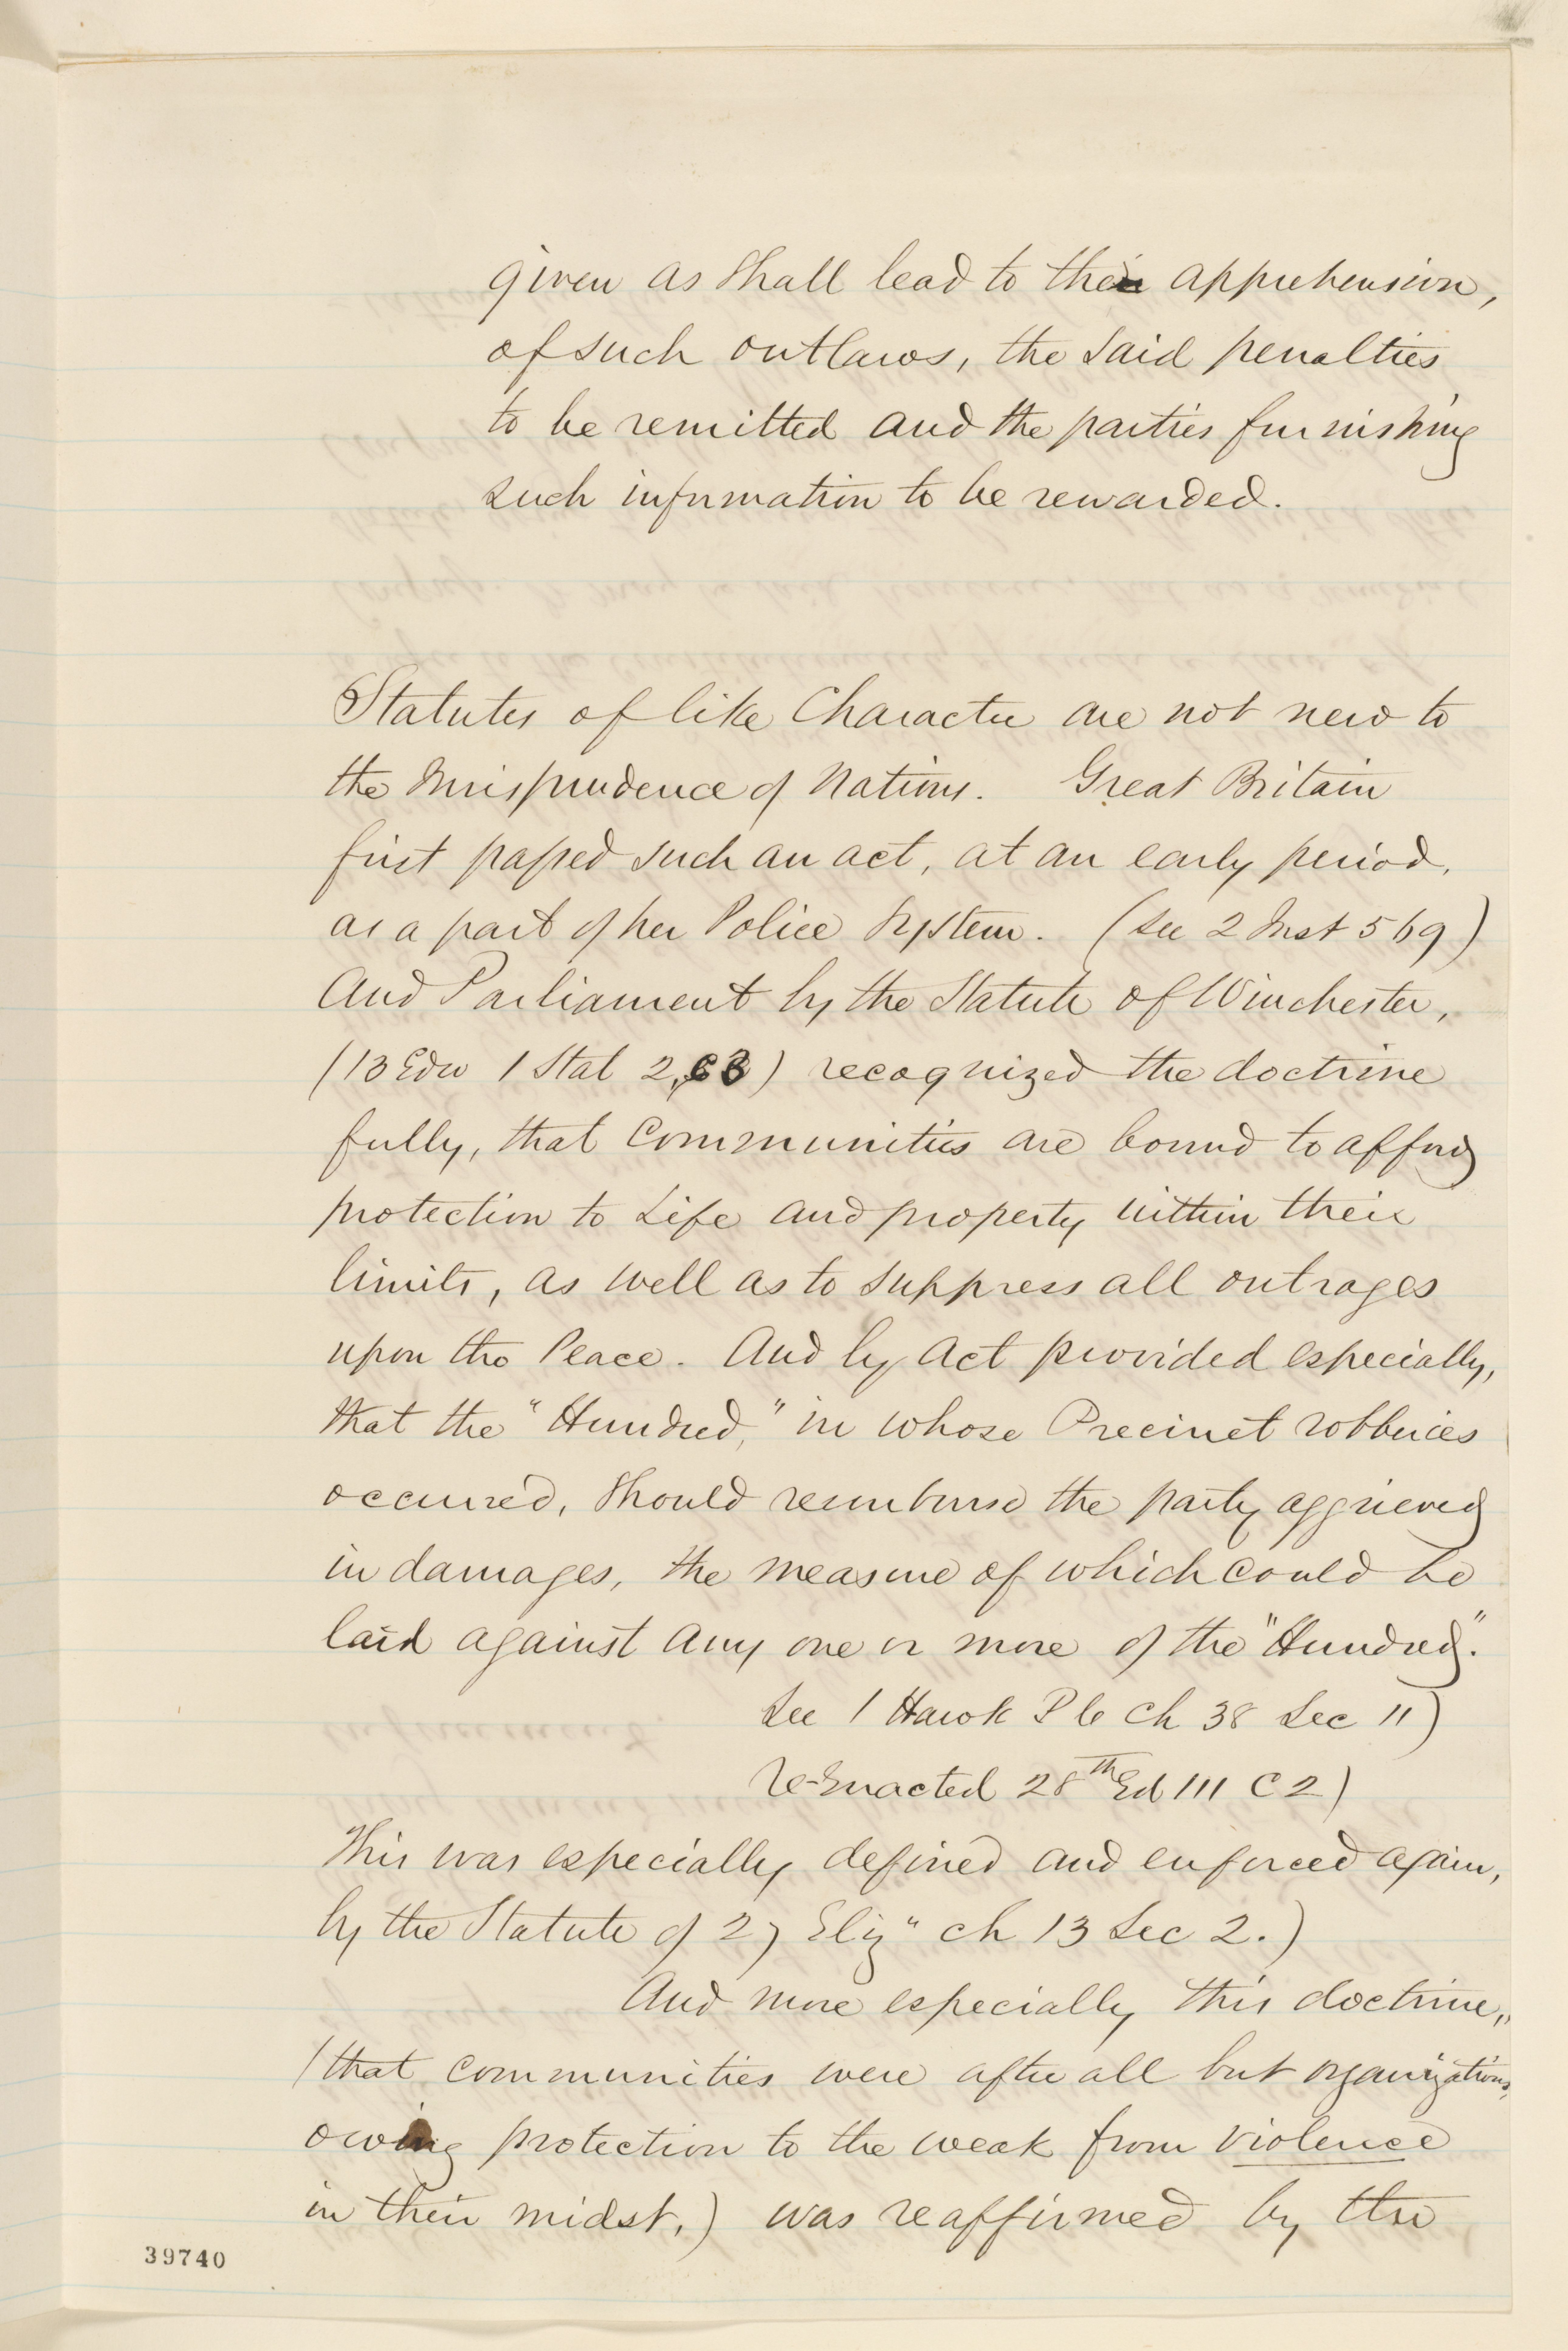 given as shall lead to the apprehension,
of such outlaws, the said penalties
to be remitted and the parties furnishing
such information to be rewarded.
Statutes of like Character are not new to
the Jurisprudence of Nations. Great Britain
first passed such an act, at an early period,
as a part of her Police System. (See 2 Inst 569)
And Parliament by the Statute of Winchester,
(13 Edw 1 Stat 2, C3) recognized the doctrine
fully, that Communities are bound to afford
protection to Life and property within their
limits, as well as to suppress all outrages
upon the Peace. And by Act provided especially,
that the "Hundred," in whose Precinct robberies
occurred, should reimburse the party aggrieved
in damages, the measure of which could be
laid against any one or more of the "Hundred".
See 1 Hawk P C Ch 38 Sec 11)
Re-Enacted 28th Ed III C 2)
This was especially defined and enforced again,
by the Statute of 27 Eliz" ch 13 Sec 2.)
And more especially this doctrine,
(that communities were after all but organizations,
owing protection to the weak from violence
in their midst,) was reaffirmed by the
39740